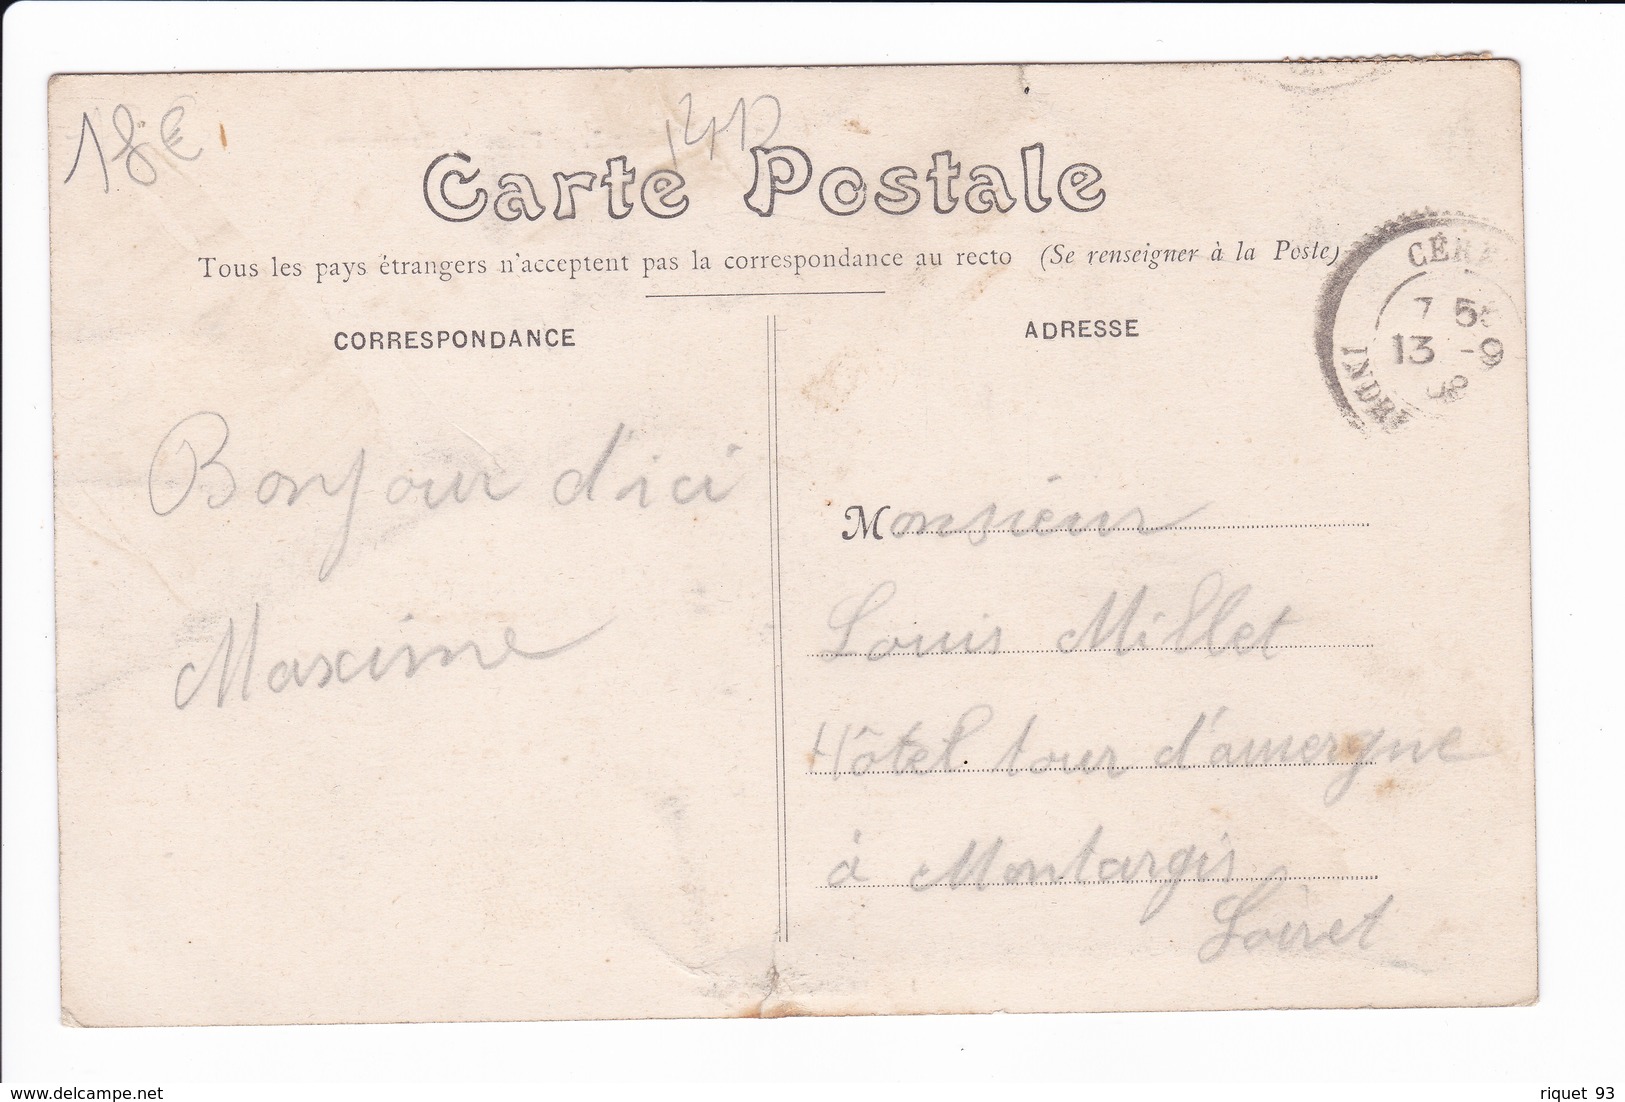 18€
14P
Carte Postale
Tous les pays étrangers n'acceptent pas la correspondance au recto (Se renseigner à la Poste)
CORRESPONDANCE
ADRESSE
7 55
13 -9
08
INDRE
Bonjour d'ici
Maxime
Monsieur
Louis Millet
Hôtel tour d'auvergne
à Montargis
Loiret
www.delcampe.net
riquet 93